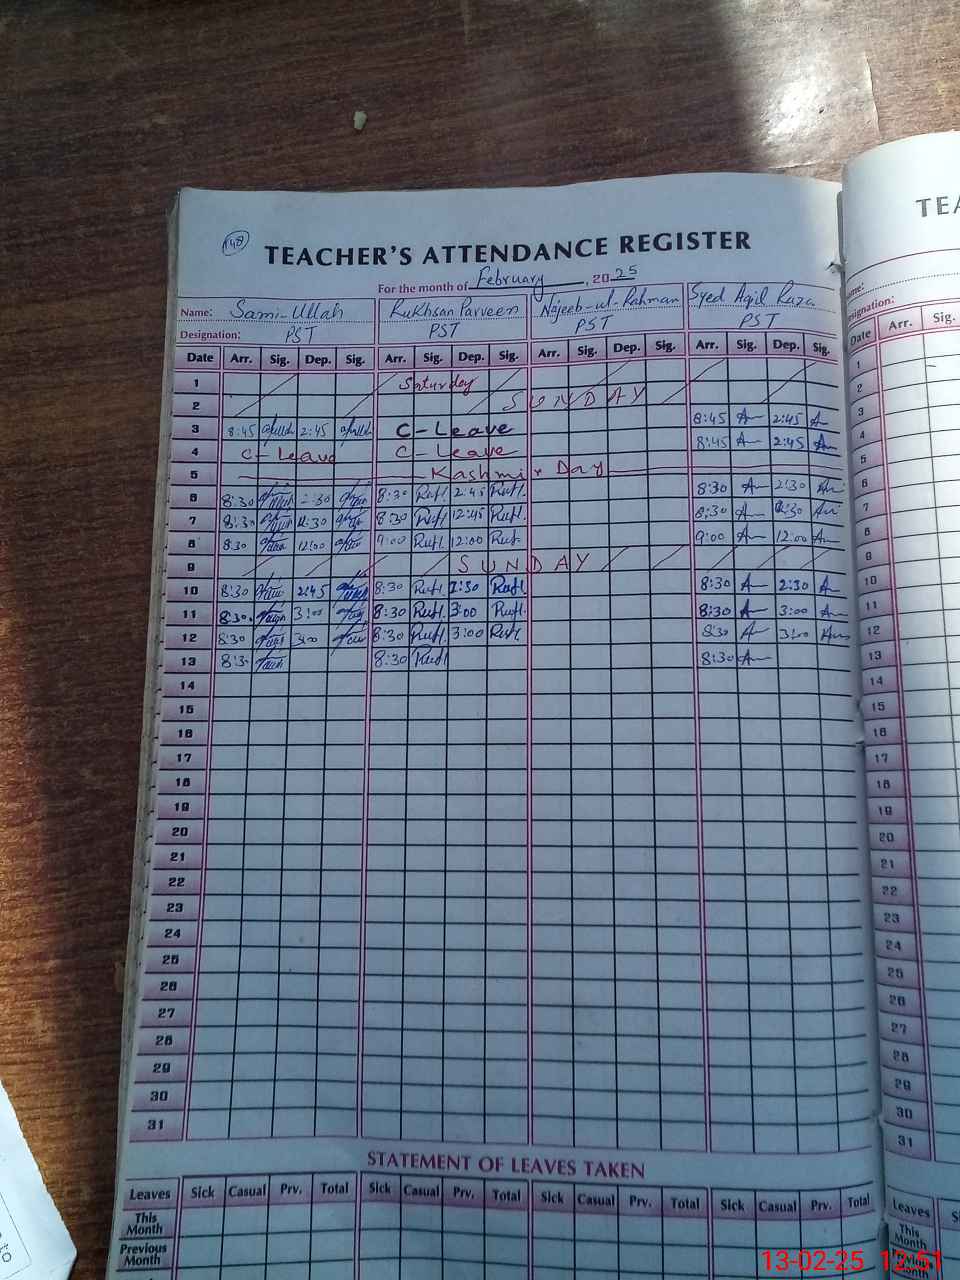 148
TEACHER'S ATTENDANCE REGISTER
For the month of February, 2025
Name: Sami-Ullah Rukhsan Parveen Najeeb-ul-Rahman Syed Aqil Raza
Designation: PST PST PST PST
Date Arr. Sig. Dep. Sig. Arr. Sig. Dep. Sig. Arr. Sig. Dep. Sig. Arr. Sig. Dep. Sig.
1 Saturday
2 SUNDAY
3 8:45 2:45 C-Leave 8:45 2:45
4 C-Leave C-Leave 8:45 2:45
5 Kashmir Day
6 8:30 8:30 2:45 8:30 2:30
7 8:30 12:30 8:30 12:45 8:30
8 8:30 12:00 9:00 12:00 9:00 12:00
9 SUNDAY
10 8:30 2:45 8:30 2:30 8:30 2:30
11 8:30 3:00 8:30 3:00 8:30 3:00
12 8:30 3:00 8:30 3:00 8:30 3:00
13 8:30 8:30 8:30
14
15
16
17
18
19
20
21
22
23
24
25
26
27
28
29
30
31
STATEMENT OF LEAVES TAKEN
Leaves Sick Casual Prv. Total Sick Casual Prv. Total Sick Casual Prv. Total Sick Casual Prv. Total
This Month
Previous Month
TEA
Designation:
Date Arr. Sig.
1
2
3
4
5
6
7
8
9
10
11
12
13
14
15
16
17
18
19
20
21
22
23
24
25
26
27
28
29
30
31
Leaves
This Month
to
13-02-25 12:51